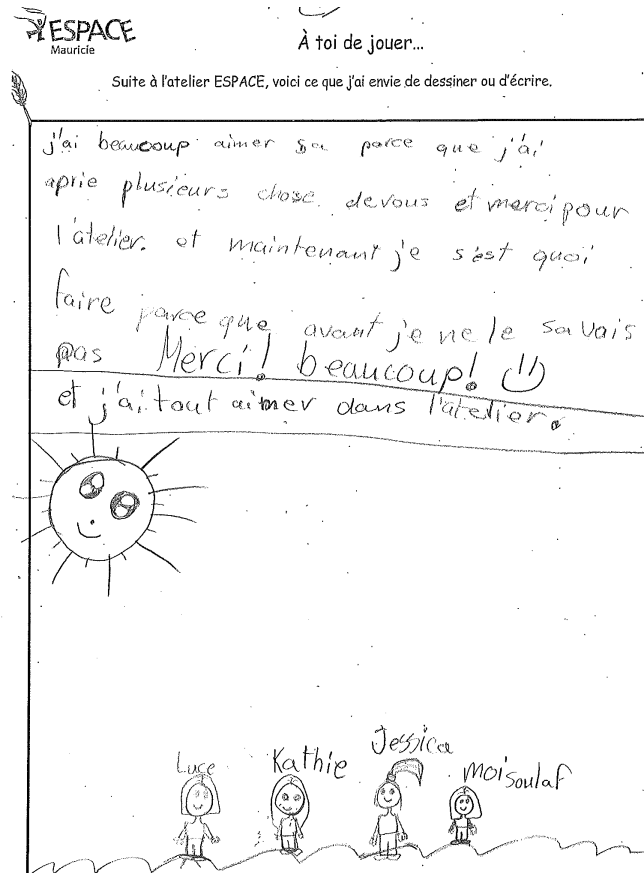 ESPACE
Mauricie
À toi de jouer...
Suite à l'atelier ESPACE, voici ce que j'ai envie de dessiner ou d'écrire.
j'ai beaucoup aimer sa parce que j'ai
aprie plusieurs chose devous et merci pour
l'atelier. et maintenant je s'est quoi
faire parce que avant je ne le savais
pas Merci! beaucoup!
et j'ai tout aimer dans l'atelier.
Luce Kathie Jessica moi soulaf